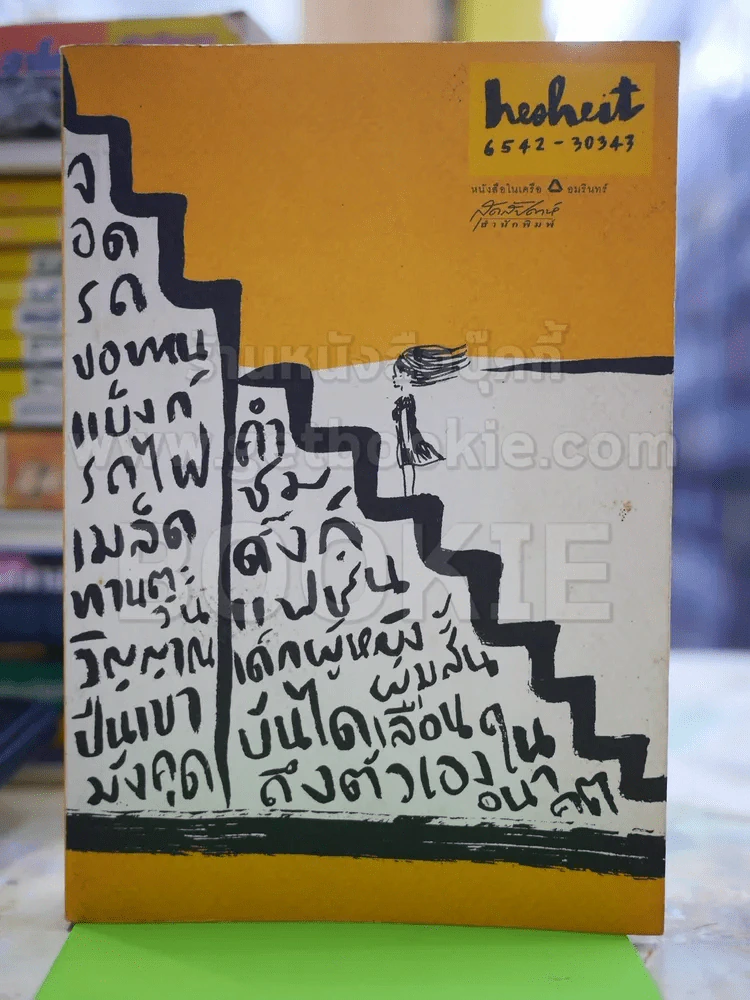 hesheit
6542-30343
หนังสือในเครือ อมรินทร์
สุดสัปดาห์
สำนักพิมพ์
จ
อด
รถ
ขอทาน
แบ็งก์
รถไฟ
เมล็ด
ทานตะ
วัน
วิญญาณ
ปีนเขา
มังคุด
คำ
ชม
ดังก์
แฟชั่น
เด็กผู้หญิง
ผมสั้น
บันไดเลื่อน
ถึงตัวเองใน
อนาคต
ร้านหนังสือบุ๊คกี้
www.getbookie.com
BOOKIE